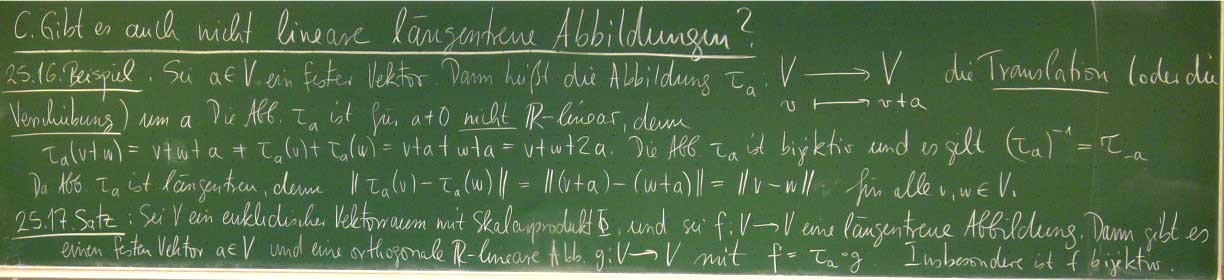 C. Gibt es auch nicht lineare längentreue Abbildungen?
25.16. Beispiel. Sei a∈V ein fester Vektor. Dann heißt die Abbildung τ_a: V → V die Translation (oder die
v ↦ v+a
Verschiebung) um a. Die Abb. τ_a ist für a≠0 nicht ℝ-linear, denn
τ_a(v+w) = v+w+a ≠ τ_a(v)+τ_a(w) = v+a+w+a = v+w+2a. Die Abb. τ_a ist bijektiv und es gilt (τ_a)^{-1} = τ_{-a}
Da Abb. τ_a ist längentreu, denn ‖τ_a(v)-τ_a(w)‖ = ‖(v+a)-(w+a)‖ = ‖v-w‖ für alle v,w∈V.
25.17. Satz: Sei V ein euklidischer Vektorraum mit Skalarprodukt Φ, und sei f: V→V eine längentreue Abbildung. Dann gibt es
einen festen Vektor a∈V und eine orthogonale ℝ-lineare Abb. g: V→V mit f = τ_a∘g. Insbesondere ist f bijektiv.